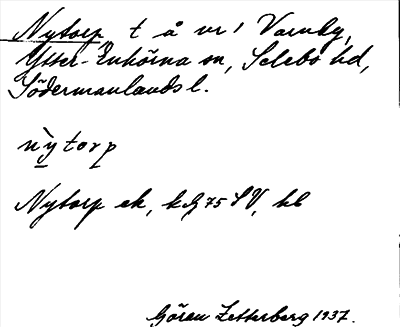 Nytorp t å nr 1 Varnby,
Ytter-Enhörna sn, Selebo hd,
Södermanlands l.
nỳtorp
Nytorp ek, kG 75 SV, bl
Göran Zetterberg 1937.